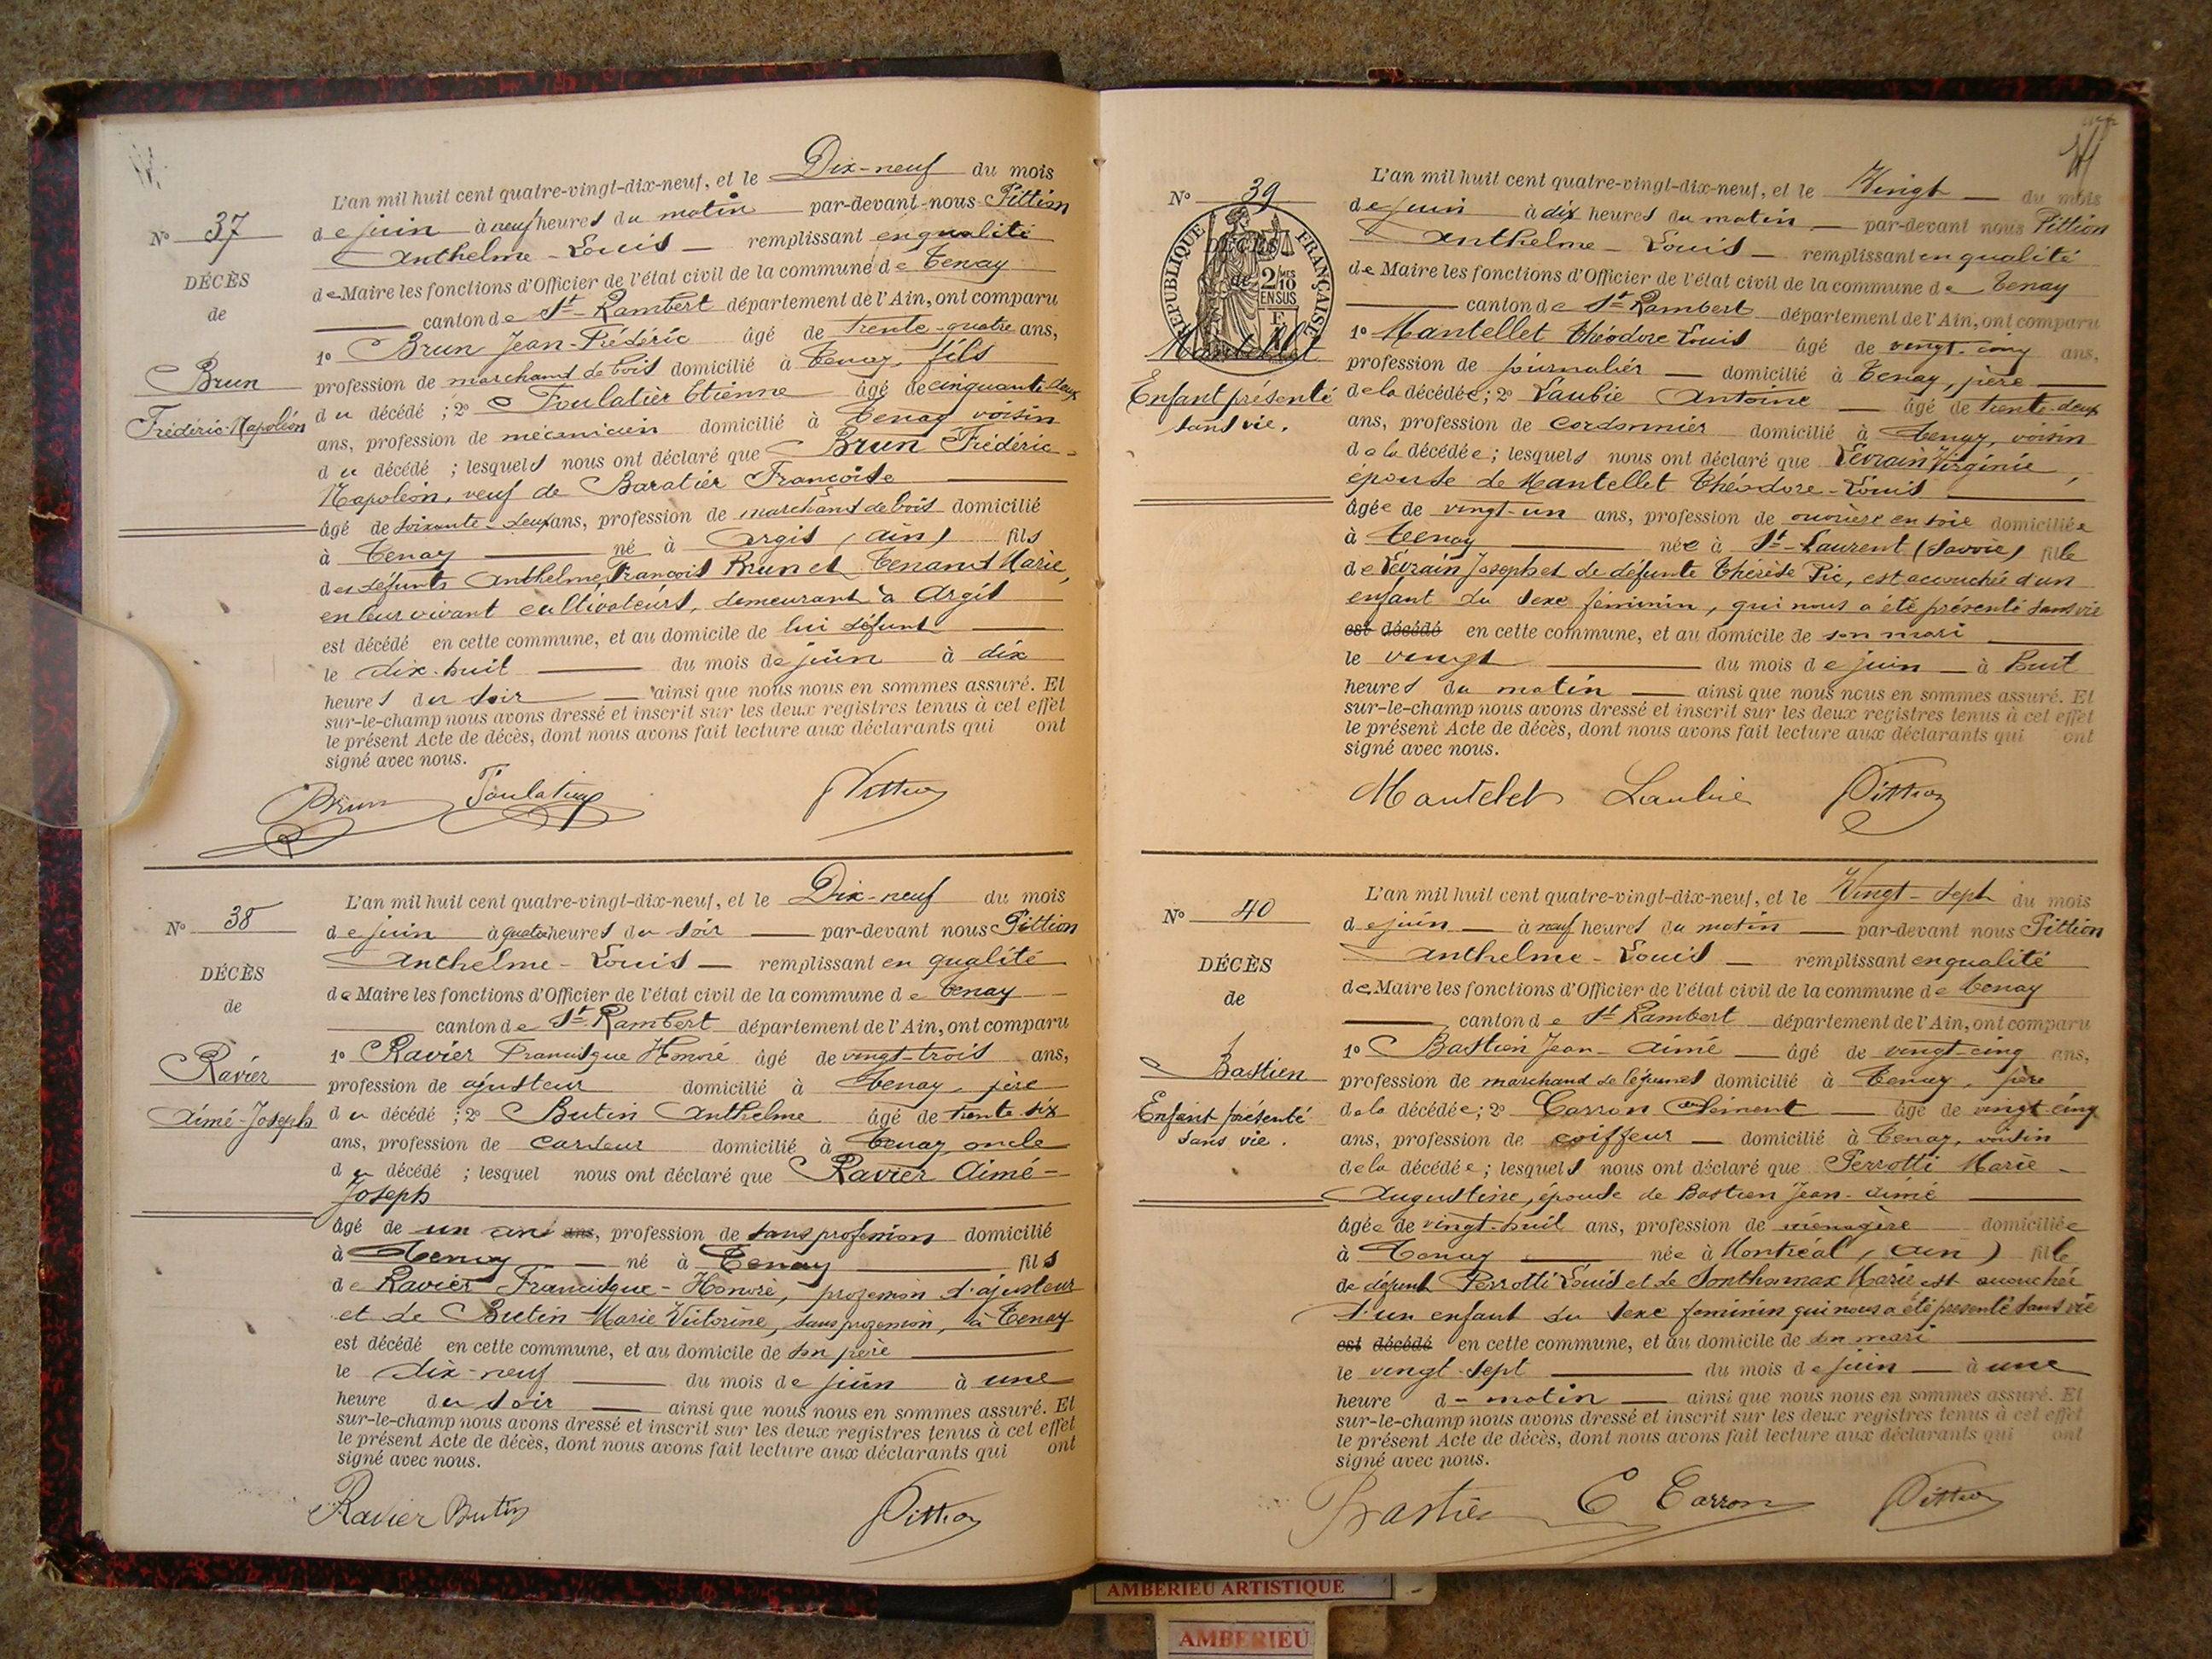 N° 37
DÉCÈS
de
Brun
Frédéric-Napoléon
L'an mil huit cent quatre-vingt-dix-neuf, et le Dix-neuf du mois
de juin à neuf heures du matin par-devant nous Pittion
Anthelme-Louis remplissant en qualité
de Maire les fonctions d'Officier de l'état civil de la commune de Tenay
canton de St-Rambert département de l'Ain, ont comparu
1° Brun Jean-Frédéric âgé de trente-quatre ans,
profession de marchand de bois domicilié à Tenay, fils
du décédé ; 2° Foulatier Etienne âgé de cinquante-deux
ans, profession de mécanicien domicilié à Tenay voisin
du décédé ; lesquels nous ont déclaré que Brun Frédéric-
Napoléon, veuf de Baratier Françoise
âgé de soixante-deux ans, profession de marchand de bois domicilié
à Tenay né à Argis (Ain) fils
des défunts Anthelme, François Brun et Tenant Marie,
en leur vivant cultivateurs, demeurant à Argis
est décédé en cette commune, et au domicile de lui défunt
le dix-huit du mois de juin à dix
heures du soir ainsi que nous nous en sommes assuré. Et
sur-le-champ nous avons dressé et inscrit sur les deux registres tenus à cet effet
le présent Acte de décès, dont nous avons fait lecture aux déclarants qui ont
signé avec nous.
Brun Foulatier Pittion
N° 38
DÉCÈS
de
Ravier
Aimé-Joseph
L'an mil huit cent quatre-vingt-dix-neuf, et le Dix-neuf du mois
de juin à quatre heures du soir par-devant nous Pittion
Anthelme-Louis remplissant en qualité
de Maire les fonctions d'Officier de l'état civil de la commune de Tenay
canton de St-Rambert département de l'Ain, ont comparu
1° Ravier Francisque Honoré âgé de vingt-trois ans,
profession de ajusteur domicilié à Tenay, père
du décédé ; 2° Butin Anthelme âgé de trente-six
ans, profession de cardeur domicilié à Tenay, oncle
du décédé ; lesquel nous ont déclaré que Ravier Aimé-
Joseph
âgé de un an ans, profession de sans profession domicilié
à Tenay né à Tenay fils
de Ravier Francisque-Honoré, profession d'ajusteur
et de Butin Marie Victorine, sans profession, à Tenay
est décédé en cette commune, et au domicile de son père
le dix-neuf du mois de juin à une
heure du soir ainsi que nous nous en sommes assuré. Et
sur-le-champ nous avons dressé et inscrit sur les deux registres tenus à cet effet
le présent Acte de décès, dont nous avons fait lecture aux déclarants qui ont
signé avec nous.
Ravier Butin Pittion
N° 39
RÉPUBLIQUE FRANÇAISE
DÉCÈS
de
2 MES
10
EN SUS
Mantellet
Enfant présenté
sans vie.
L'an mil huit cent quatre-vingt-dix-neuf, et le Vingt du mois
de juin à dix heures du matin par-devant nous Pittion
Anthelme-Louis remplissant en qualité
de Maire les fonctions d'Officier de l'état civil de la commune de Tenay
canton de St-Rambert département de l'Ain, ont comparu
1° Mantellet Théodore Louis âgé de vingt-cinq ans,
profession de journalier domicilié à Tenay, père
de la décédée ; 2° Laubie Antoine âgé de trente-deux
ans, profession de cordonnier domicilié à Tenay, voisin
de la décédée ; lesquels nous ont déclaré que Lévrain Virginie,
épouse de Mantellet Théodore-Louis
âgée de vingt-un ans, profession de ouvrière en soie domiciliée
à Tenay née à St-Laurent (Savoie) fille
de Lévrain Joseph et de défunte Thérèse Pic, est accouchée d'un
enfant du sexe féminin, qui nous a été présenté sans vie
est décédé en cette commune, et au domicile de son mari
le vingt du mois de juin à huit
heures du matin ainsi que nous nous en sommes assuré. Et
sur-le-champ nous avons dressé et inscrit sur les deux registres tenus à cet effet
le présent Acte de décès, dont nous avons fait lecture aux déclarants qui ont
signé avec nous.
Mantelet Laubie Pittion
N° 40
DÉCÈS
de
Bastien
Enfant présenté
sans vie.
L'an mil huit cent quatre-vingt-dix-neuf, et le Vingt-sept du mois
de juin à neuf heures du matin par-devant nous Pittion
Anthelme-Louis remplissant en qualité
de Maire les fonctions d'Officier de l'état civil de la commune de Tenay
canton de St Rambert département de l'Ain, ont comparu
1° Bastien Jean-Aimé âgé de vingt-cinq ans,
profession de marchand de légumes domicilié à Tenay, père
de la décédée ; 2° Carron Clément âgé de vingt-cinq
ans, profession de coiffeur domicilié à Tenay, voisin
de la décédée ; lesquels nous ont déclaré que Perrotti Marie-
Augustine, épouse de Bastien Jean-Aimé
âgée de vingt-huit ans, profession de ménagère domiciliée
à Tenay née à Montréal (Ain) fille
de défunt Perrotti Louis et de Sonthonnax Marie est accouchée
d'un enfant du sexe féminin qui nous a été présenté sans vie
est décédé en cette commune, et au domicile de son mari
le vingt-sept du mois de juin à une
heure d- matin ainsi que nous nous en sommes assuré. Et
sur-le-champ nous avons dressé et inscrit sur les deux registres tenus à cet effet
le présent Acte de décès, dont nous avons fait lecture aux déclarants qui ont
signé avec nous.
Bastien C Carron Pittion
AMBERIEU ARTISTIQUE
AMBERIEU